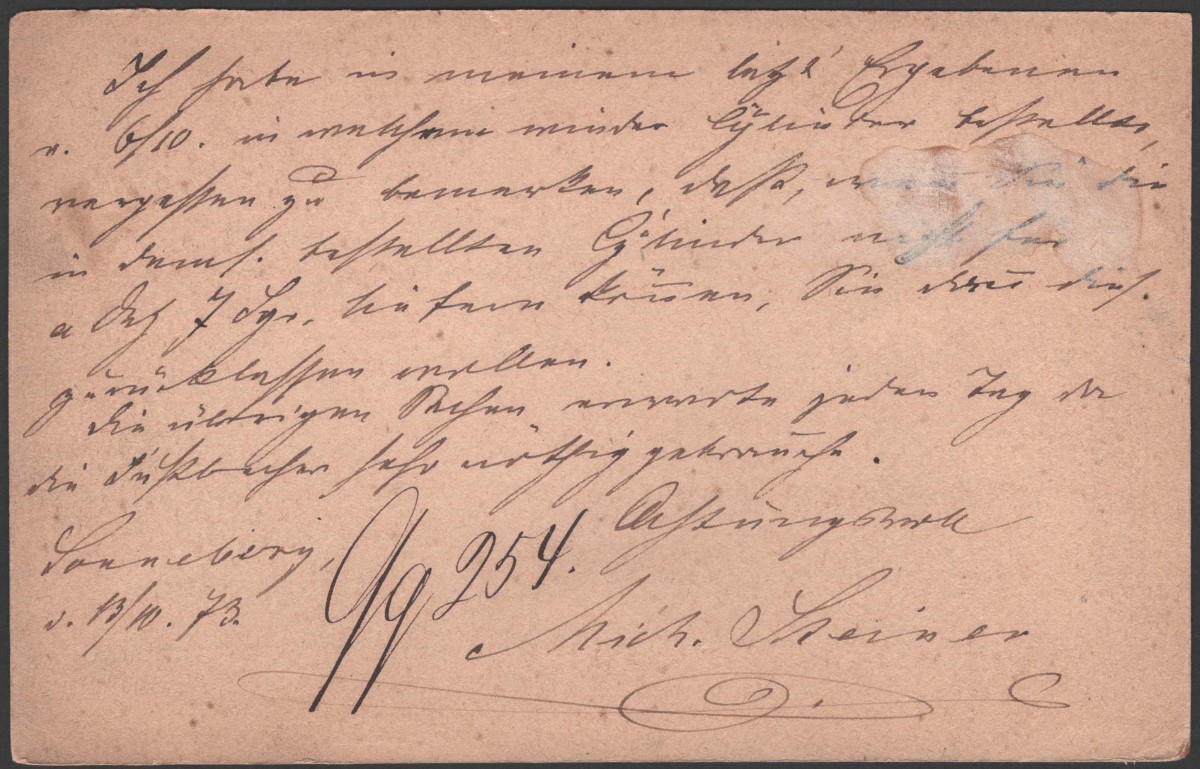 Ich habe in meinem letzt Ergebenen
v. 6/10. in welchem wieder Cÿlinder bestellte,
vergessen zu bemerken, daß, Sie die
in dems. bestellten Cÿlinder nicht für
a Dtz 7 Sgr. liefern können, Sie dies.
zurücklassen wollen.
Die übrigen Sachen erwarte jeden Tag da
die Fußbecher sehr nöthig gebrauche.
Sonneberg, Achtungsvoll
d. 13/10. 73. 254. Mich. Steiner